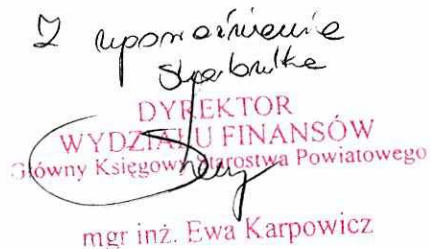 Z upoważnienia
Skarbnika
DYREKTOR
WYDZIAŁU FINANSÓW
Główny Księgowy Starostwa Powiatowego
mgr inż. Ewa Karpowicz